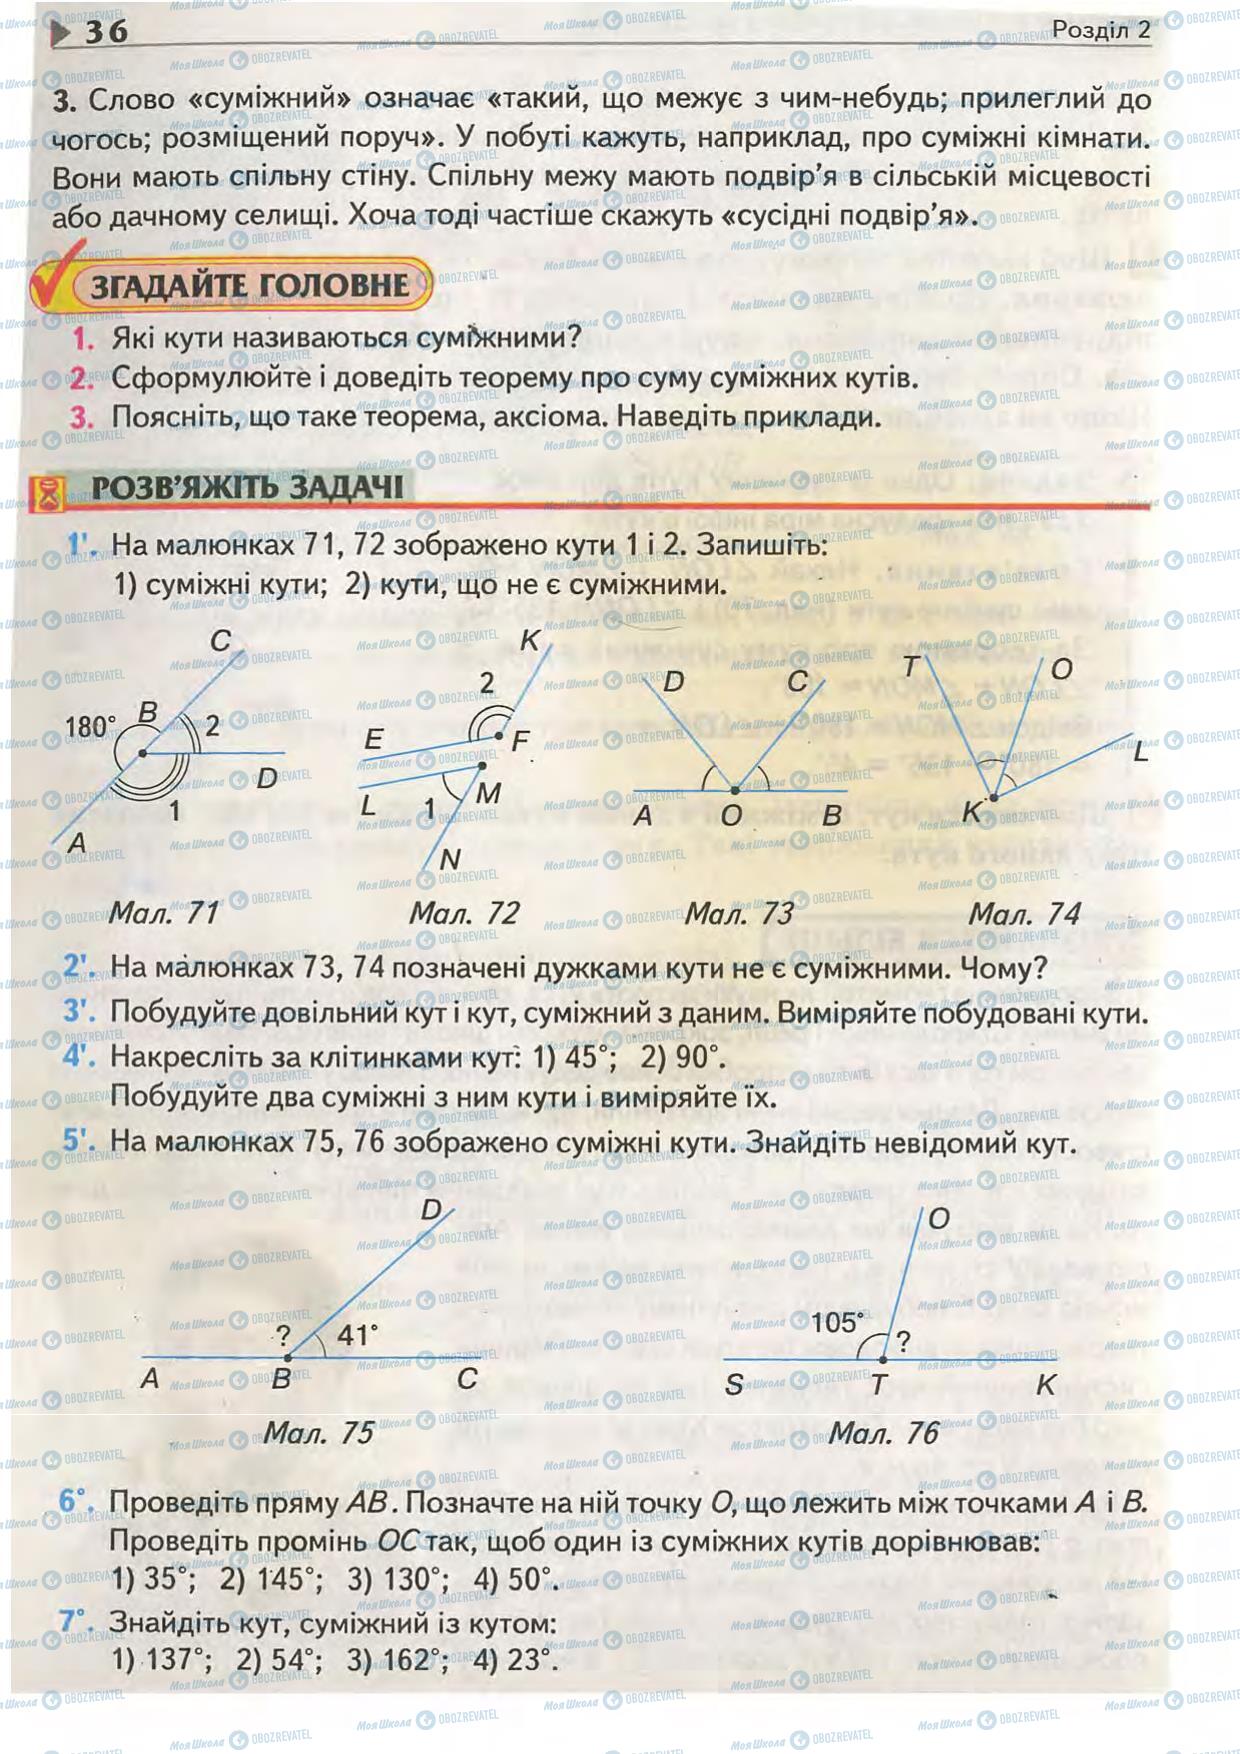 36
Розділ 2
3. Слово «суміжний» означає «такий, що межує з чим-небудь; прилеглий до
чогось; розміщений поруч». У побуті кажуть, наприклад, про суміжні кімнати.
Вони мають спільну стіну. Спільну межу мають подвір'я в сільській місцевості
або дачному селищі. Хоча тоді частіше скажуть «сусідні подвір'я».
ЗГАДАЙТЕ ГОЛОВНЕ
1. Які кути називаються суміжними?
2. Сформулюйте і доведіть теорему про суму суміжних кутів.
3. Поясніть, що таке теорема, аксіома. Наведіть приклади.
РОЗВ'ЯЖІТЬ ЗАДАЧІ
1'. На малюнках 71, 72 зображено кути 1 і 2. Запишіть:
1) суміжні кути; 2) кути, що не є суміжними.
C
180° B 2
D
1
A
K
2
E
F
L 1 M
N
D C
A O B
T O
L
K
Мал. 71 Мал. 72 Мал. 73 Мал. 74
2'. На малюнках 73, 74 позначені дужками кути не є суміжними. Чому?
3'. Побудуйте довільний кут і кут, суміжний з даним. Виміряйте побудовані кути.
4'. Накресліть за клітинками кут: 1) 45°; 2) 90°.
Побудуйте два суміжні з ним кути і виміряйте їх.
5'. На малюнках 75, 76 зображено суміжні кути. Знайдіть невідомий кут.
D
? 41°
A B C
O
105° ?
S T K
Мал. 75 Мал. 76
6°. Проведіть пряму AB. Позначте на ній точку O, що лежить між точками A і B.
Проведіть промінь OC так, щоб один із суміжних кутів дорівнював:
1) 35°; 2) 145°; 3) 130°; 4) 50°.
7°. Знайдіть кут, суміжний із кутом:
1) 137°; 2) 54°; 3) 162°; 4) 23°.
МояШкола OBOZREVATEL